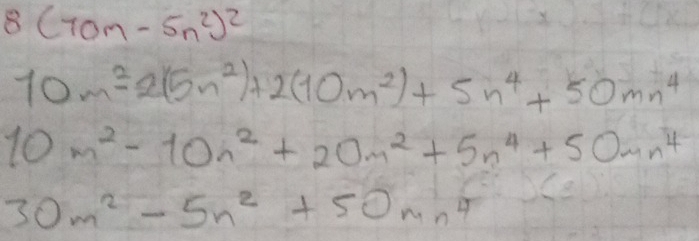 8 (10m - 5n²)²
10m² - 2(5n²) + 2(10m²) + 5n⁴ + 50mn⁴
10m² - 10n² + 20m² + 5n⁴ + 50mn⁴
30m² - 5n² + 50mn⁴